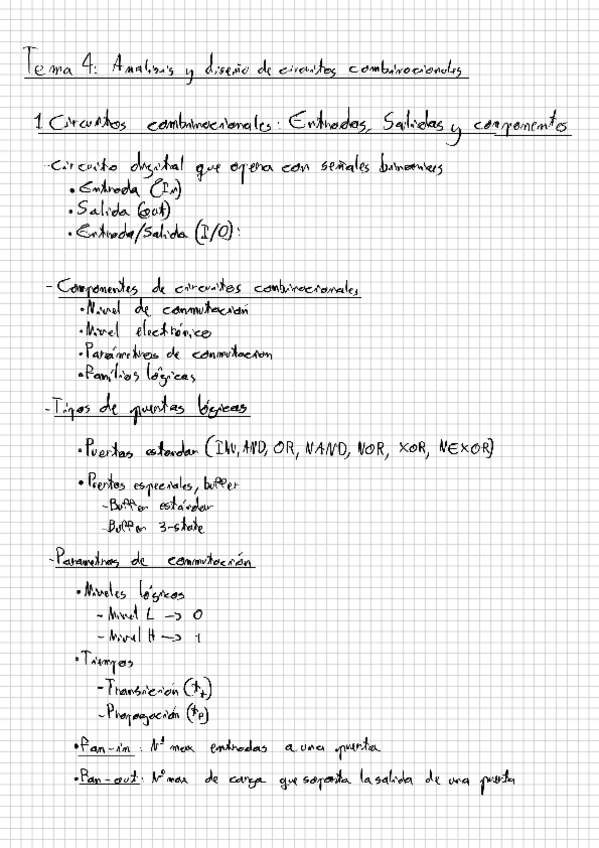 Tema 4: Analisis y diseño de circuitos combinacionales
1 Circuitos combinacionales: Entradas, Salidas y componentes
-Circuito digital que opera con señales binarias
• Entrada (In)
• Salida (out)
• Entrada/Salida (I/O):
- Componentes de circuitos combinacionales
• Nivel de conmutación
• Nivel electrónico
• Parámetros de conmutacion
• Familias lógicas
- Tipos de puertas lógicas
• Puertas estandar (INV, AND, OR, NAND, NOR, XOR, NEXOR)
• Puertas especiales, buffer
- Buffer estándar
- Buffer 3-state
- Parametros de conmutación
• Niveles lógicos
- Nivel L -> 0
- Nivel H -> 1
• Tiempos
- Transición (tt)
- Propagación (tp)
• Fan-in: Nº max entradas a una puerta
• Fan-out: Nº max de carga que soporta la salida de una puerta